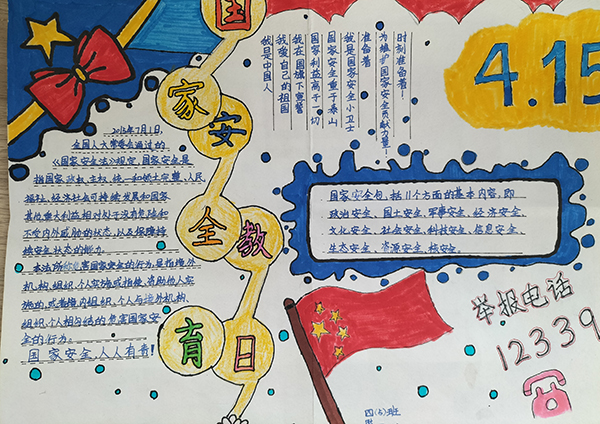 国家安全教育日
2015年7月1日,
全国人大常委会通过的
《国家安全法》规定,国家安全是
指国家政权、主权、统一和领土完整、人民
福祉、经济社会可持续发展和国家
其他重大利益相对处于没有危险和
不受内外威胁的状态,以及保障持
续安全状态的能力.
本法所称危害国家安全的行为,是指境外
机构、组织、个人实施或指使、资助他人实
施的,或者境内组织、个人与境外机构、
组织、个人相勾结的危害国家安
全的行为.
国家安全,人人有责!
时刻准备着!
为维护国家安全贡献力量!
准备着
我是国家安全小卫士
国家安全重于泰山
国家利益高于一切
我在国旗下宣誓
我爱自己的祖国
我是中国人
4.15
国家安全包括11个方面的基本内容,即
政治安全、国土安全、军事安全、经济安全、
文化安全、社会安全、科技安全、信息安全、
生态安全、资源安全、核安全。
举报电话
12339
四(6)班